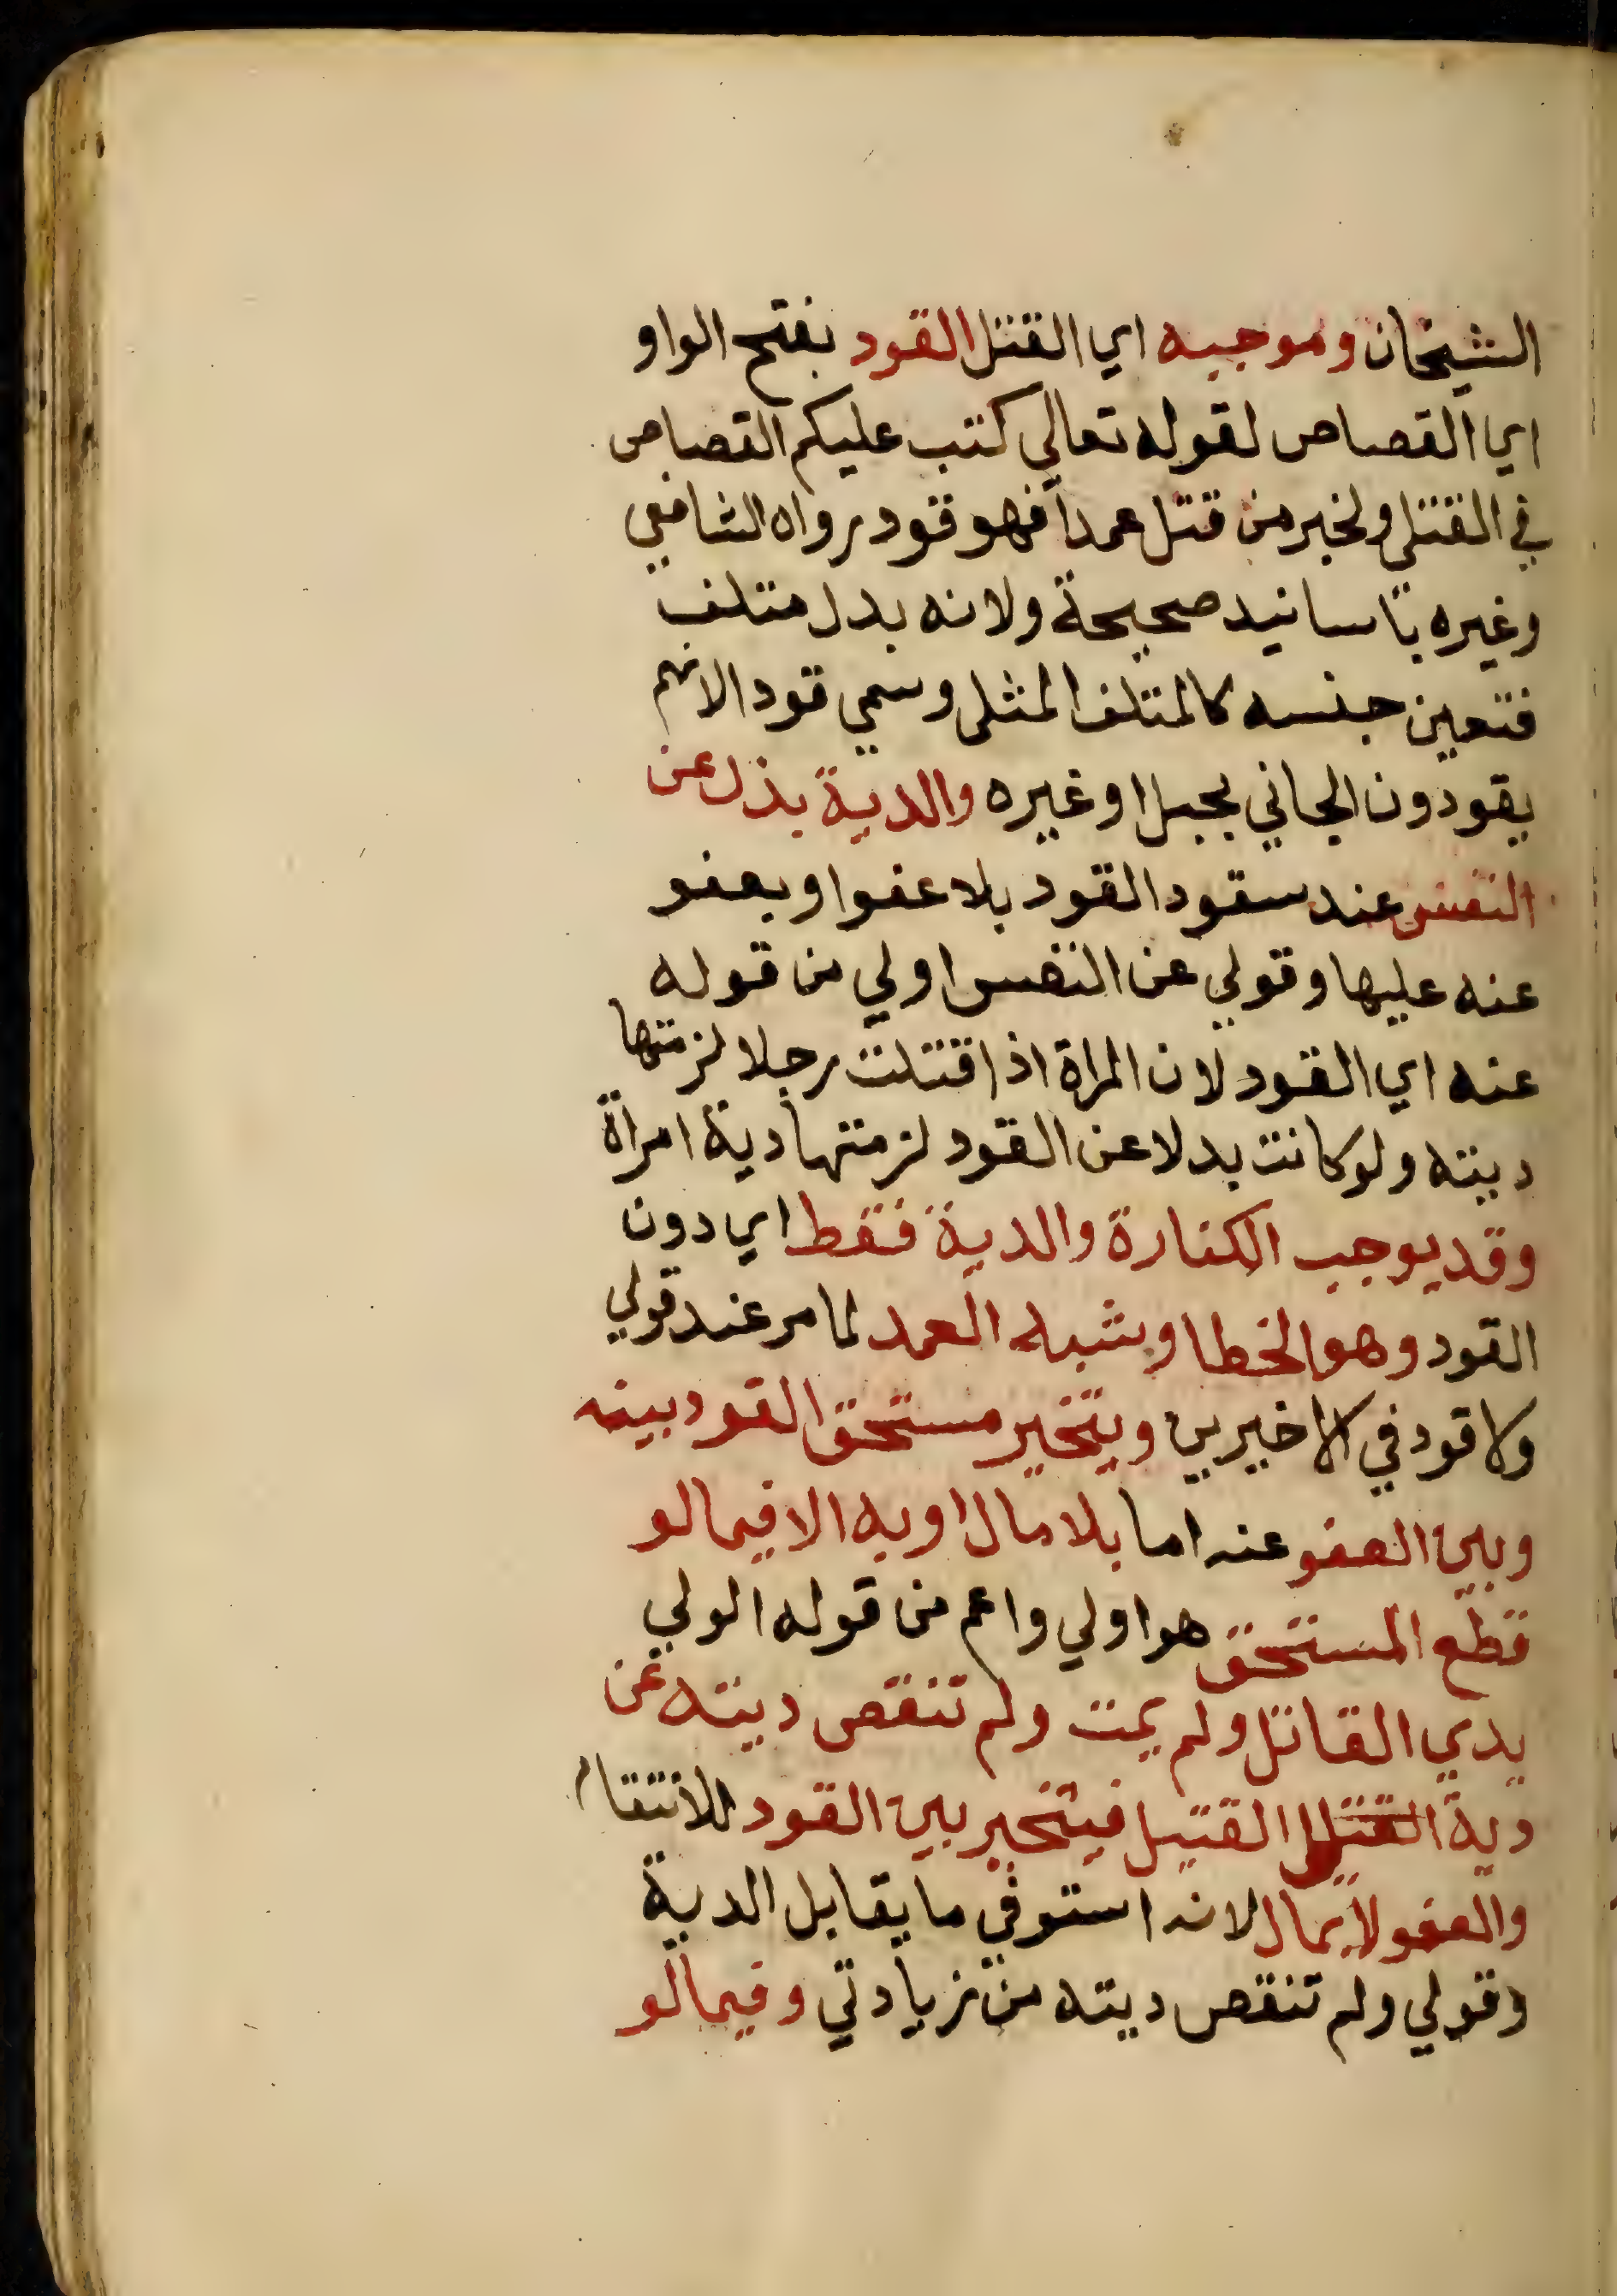 الشيخان وموجبه اي القتل القود بفتح الواو
اي القصاص لقوله تعالي كتب عليكم القصاص
في القتلي ولخبر من قتل عمدا فهو قود رواه الشافعي
وغيره باسانيد صحيحة ولانه بدل متلف
فتعين جنسه كالمتلف المثلي وسمي قودا لانهم
يقودون الجاني بحبل او غيره والدية بذل عن
النفس عند سقود القود بلا عفو او بعفو
عنه عليها وقولي عن النفس اولي من قوله
عنه اي القود لان المراة اذا قتلت رجلا لزمتها
ديته ولو كانت بدلا عن القود لزمتها دية امراة
وقد يوجب الكفارة والدية فقط اي دون
القود وهو الخطا وشبه العمد لما مر عند قولي
ولا قود في الاخيرين ويتخير مستحق القود بينه
وبين العفو عنه اما بلا مال او به الا فيما لو
قطع المستحق هو اولي واعم من قوله الولي
يدي القاتل ولم يمت ولم تنقص ديته عن
دية القتل القتيل فيتخير بين القود للانتقام
والعفو لا بمال لانه استوفي ما يقابل الدية
وقولي ولم تنقص ديته من زيادتي وفيما لو